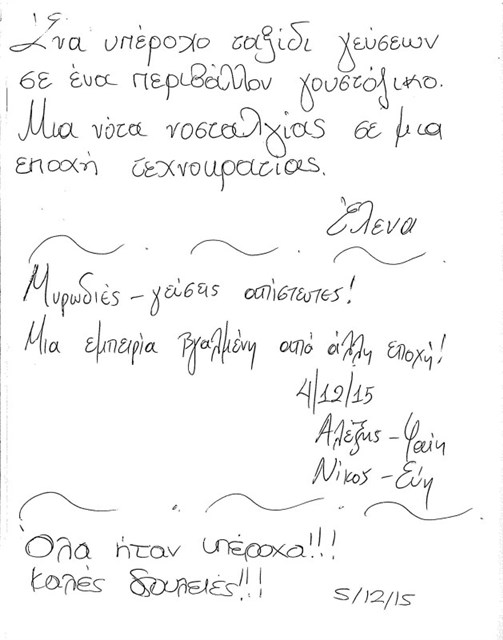 Ένα υπέροχο ταξίδι γεύσεων
σε ένα περιβάλλον γουστόζικο.
Μια νότα νοσταλγίας σε μια
εποχή τεχνοκρατίας.
Έλενα
Μυρωδιές - γεύσεις απίστευτες!
Μια εμπειρία βγαλμένη από άλλη εποχή!
4/12/15
Αλέξης - Φαίη
Νίκος - Εύη
Όλα ήταν υπέροχα!!!
Καλές δουλειές!!!
5/12/15